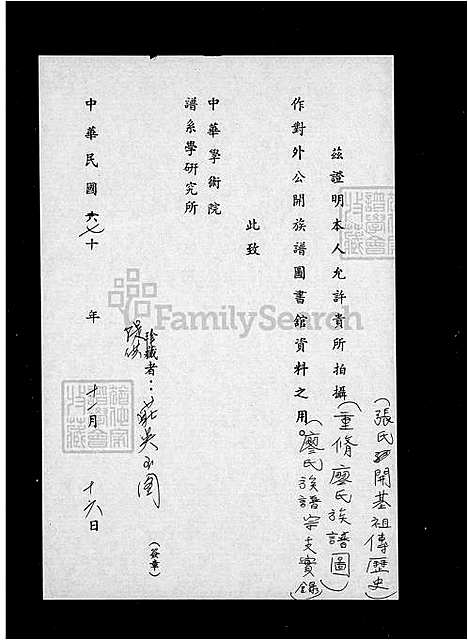 (張氏開基祖傳歷史)
茲證明本人允許貴所拍攝(重脩廖氏族譜圖)
(廖氏族譜宗支實錄)
作對外公開族譜圖書館資料之用。
此致
中華學術院
譜系學研究所
珍藏者:莊吳玉图 (簽章)
提供
中華民國六七十年十一月十六日
FamilySearch